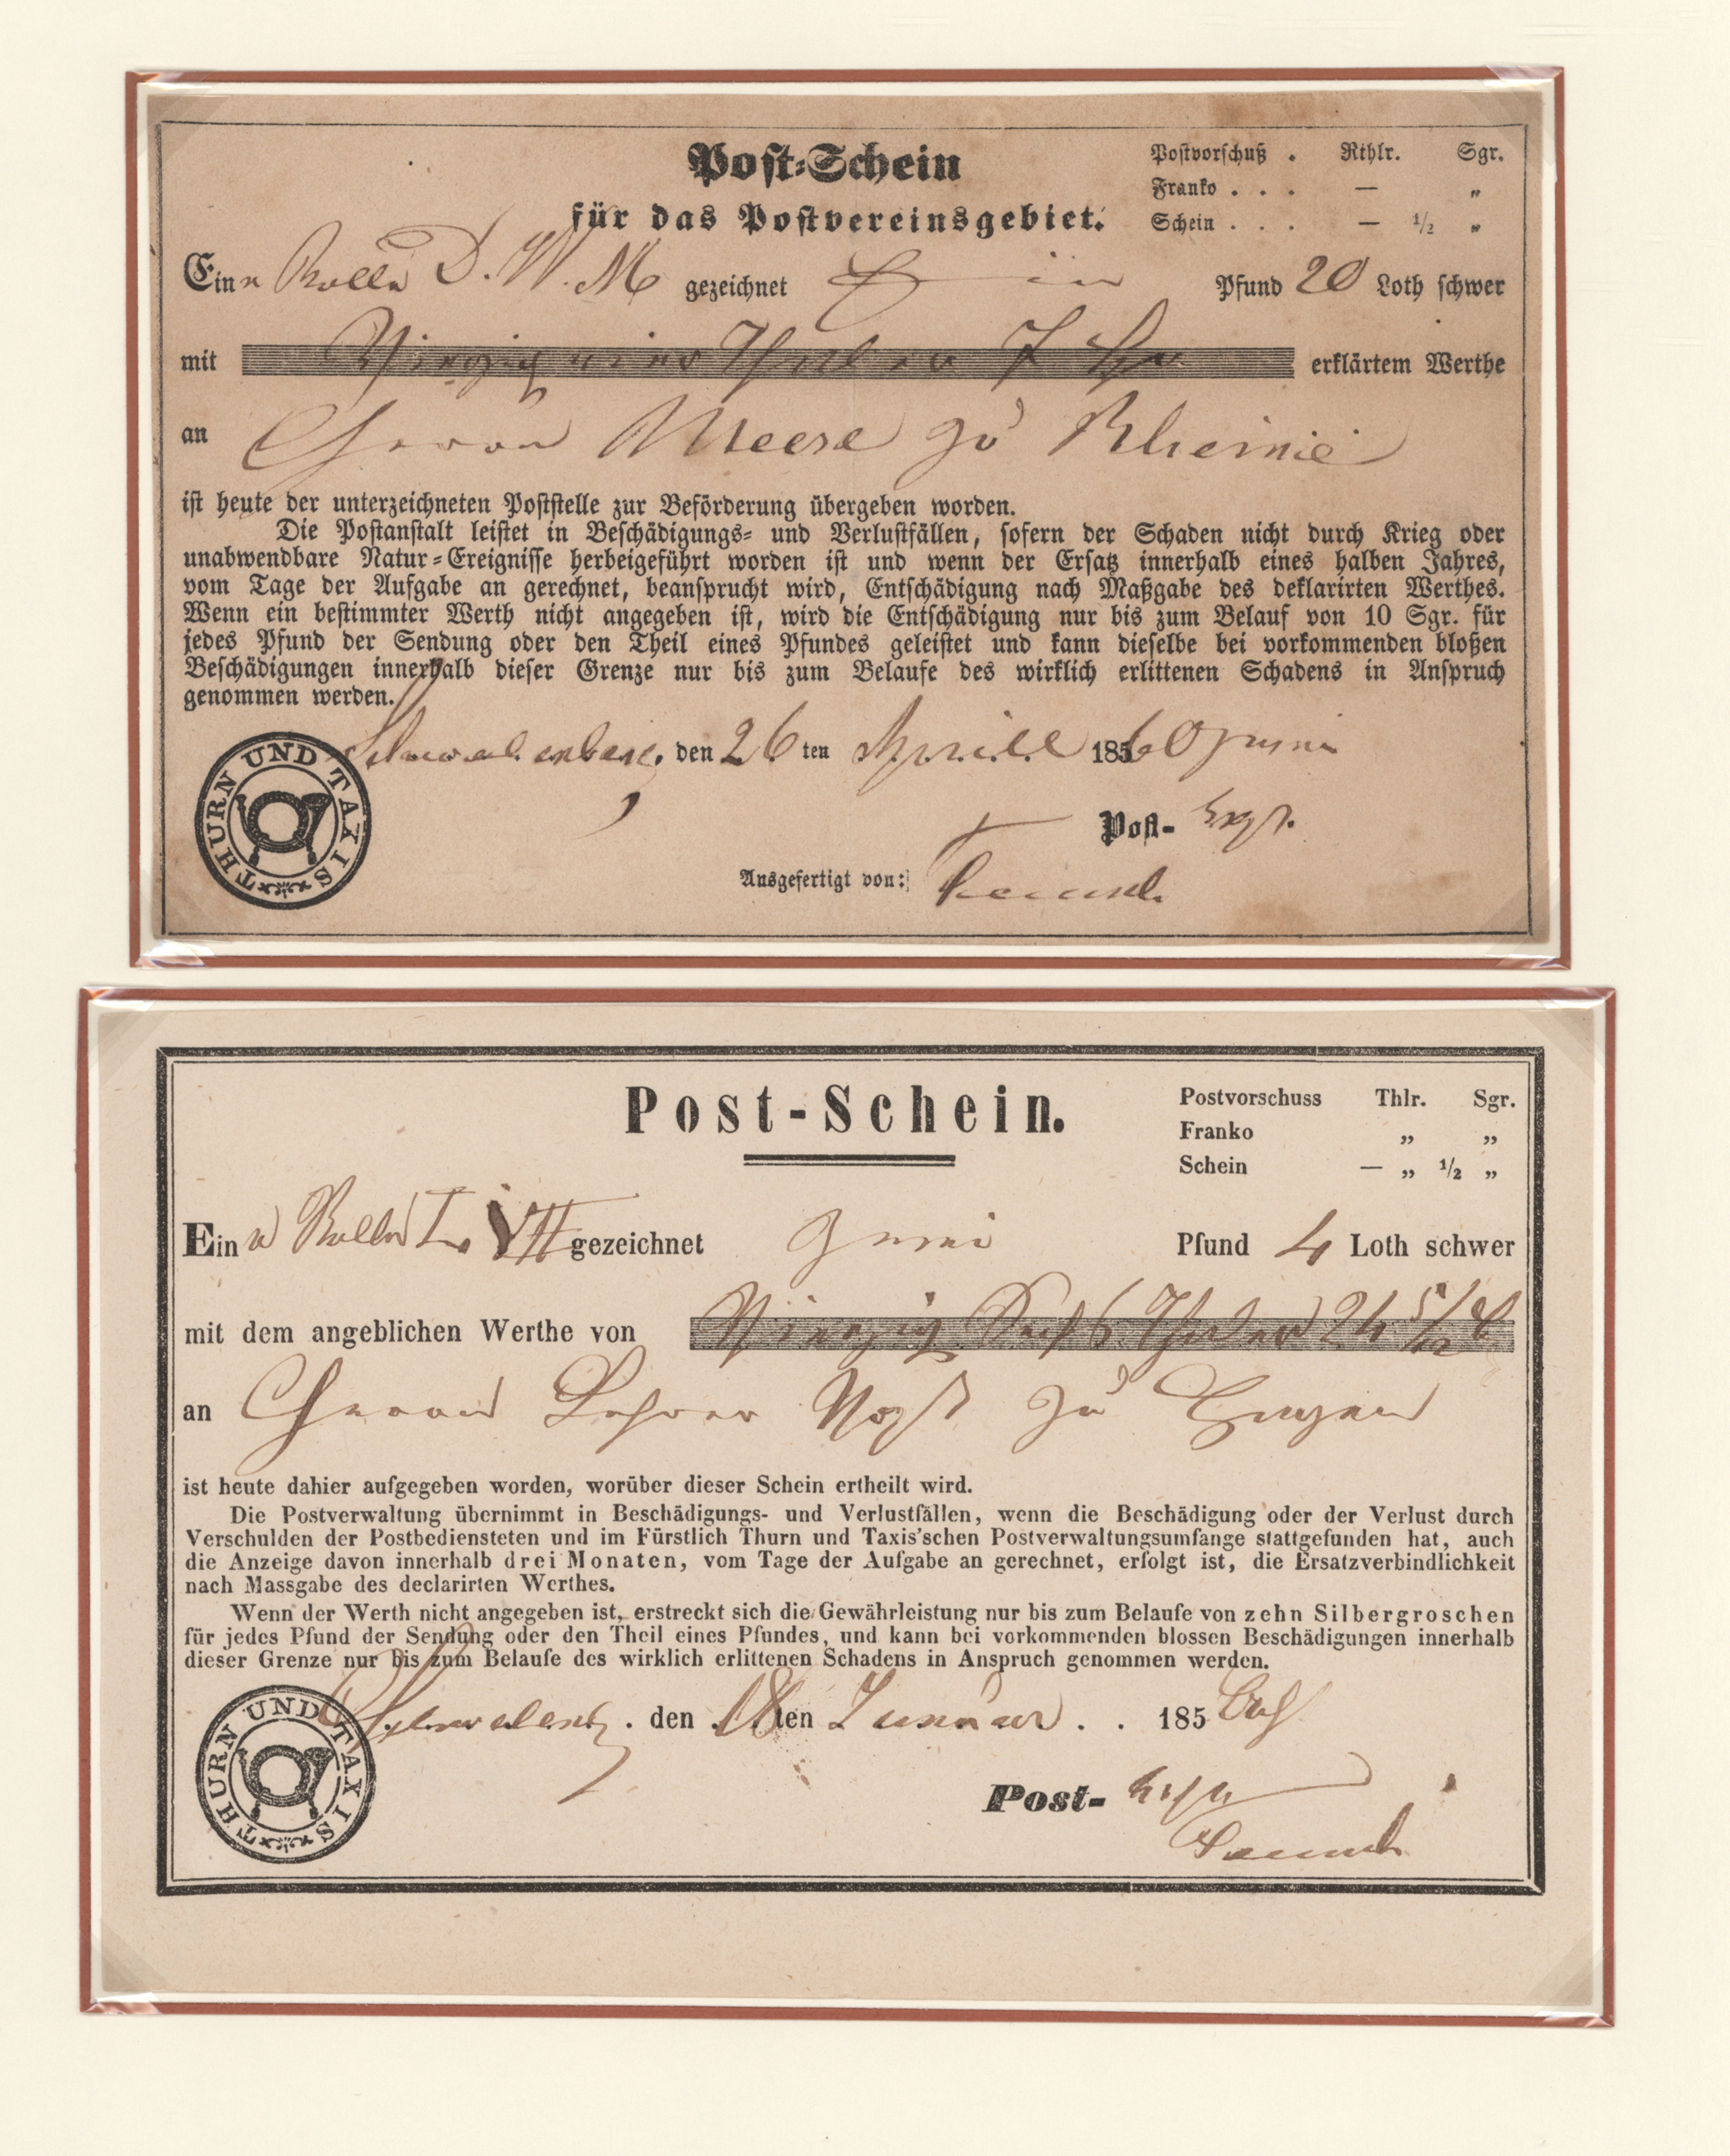 Post-Schein
für das Postvereinsgebiet.
Postvorschuß . Rthlr. Sgr.
Franko . . . — „
Schein . . . — ½ „
Eine Rolle D. W. M gezeichnet Pfund 20 Loth schwer
mit Vierzig Thaler 7 erklärtem Werthe
an Herrn Meese zu Rheine
ist heute der unterzeichneten Poststelle zur Beförderung übergeben worden.
Die Postanstalt leistet in Beschädigungs- und Verlustfällen, sofern der Schaden nicht durch Krieg oder
unabwendbare Natur-Ereignisse herbeigeführt worden ist und wenn der Ersatz innerhalb eines halben Jahres,
vom Tage der Aufgabe an gerechnet, beansprucht wird, Entschädigung nach Maßgabe des deklarirten Werthes.
Wenn ein bestimmter Werth nicht angegeben ist, wird die Entschädigung nur bis zum Belauf von 10 Sgr. für
jedes Pfund der Sendung oder den Theil eines Pfundes geleistet und kann dieselbe bei vorkommenden bloßen
Beschädigungen innerhalb dieser Grenze nur bis zum Belaufe des wirklich erlittenen Schadens in Anspruch
genommen werden.
Schwalenberg, den 26 ten Aprill 185
THURN UND TAXIS
Post-
Ausgefertigt von:
Post-Schein.
Postvorschuss Thlr. Sgr.
Franko „ „
Schein — „ ½ „
Eine Rolle gezeichnet Pfund 4 Loth schwer
mit dem angeblichen Werthe von Vierzig Sechs Thaler 24 5/12
an Herrn Lehrer zu
ist heute dahier aufgegeben worden, worüber dieser Schein ertheilt wird.
Die Postverwaltung übernimmt in Beschädigungs- und Verlustfällen, wenn die Beschädigung oder der Verlust durch
Verschulden der Postbediensteten und im Fürstlich Thurn und Taxis'schen Postverwaltungsumfange stattgefunden hat, auch
die Anzeige davon innerhalb drei Monaten, vom Tage der Aufgabe an gerechnet, erfolgt ist, die Ersatzverbindlichkeit
nach Massgabe des declarirten Werthes.
Wenn der Werth nicht angegeben ist, erstreckt sich die Gewährleistung nur bis zum Belaufe von zehn Silbergroschen
für jedes Pfund der Sendung oder den Theil eines Pfundes, und kann bei vorkommenden blossen Beschädigungen innerhalb
dieser Grenze nur bis zum Belaufe des wirklich erlittenen Schadens in Anspruch genommen werden.
Schwalenbg. den 18ten Januar . . 185
THURN UND TAXIS
Post-